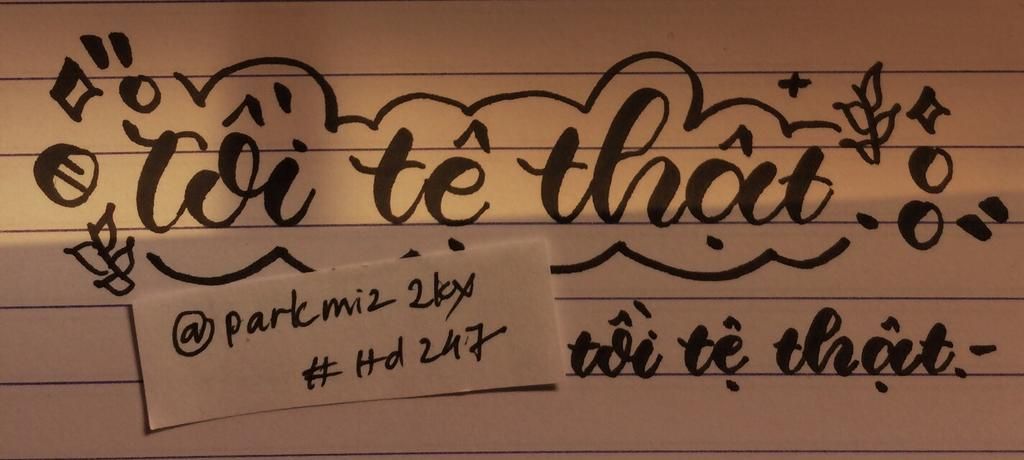 tồi tệ thật.
@parkmiz 2kx
# Hd 247
tồi tệ thật.-